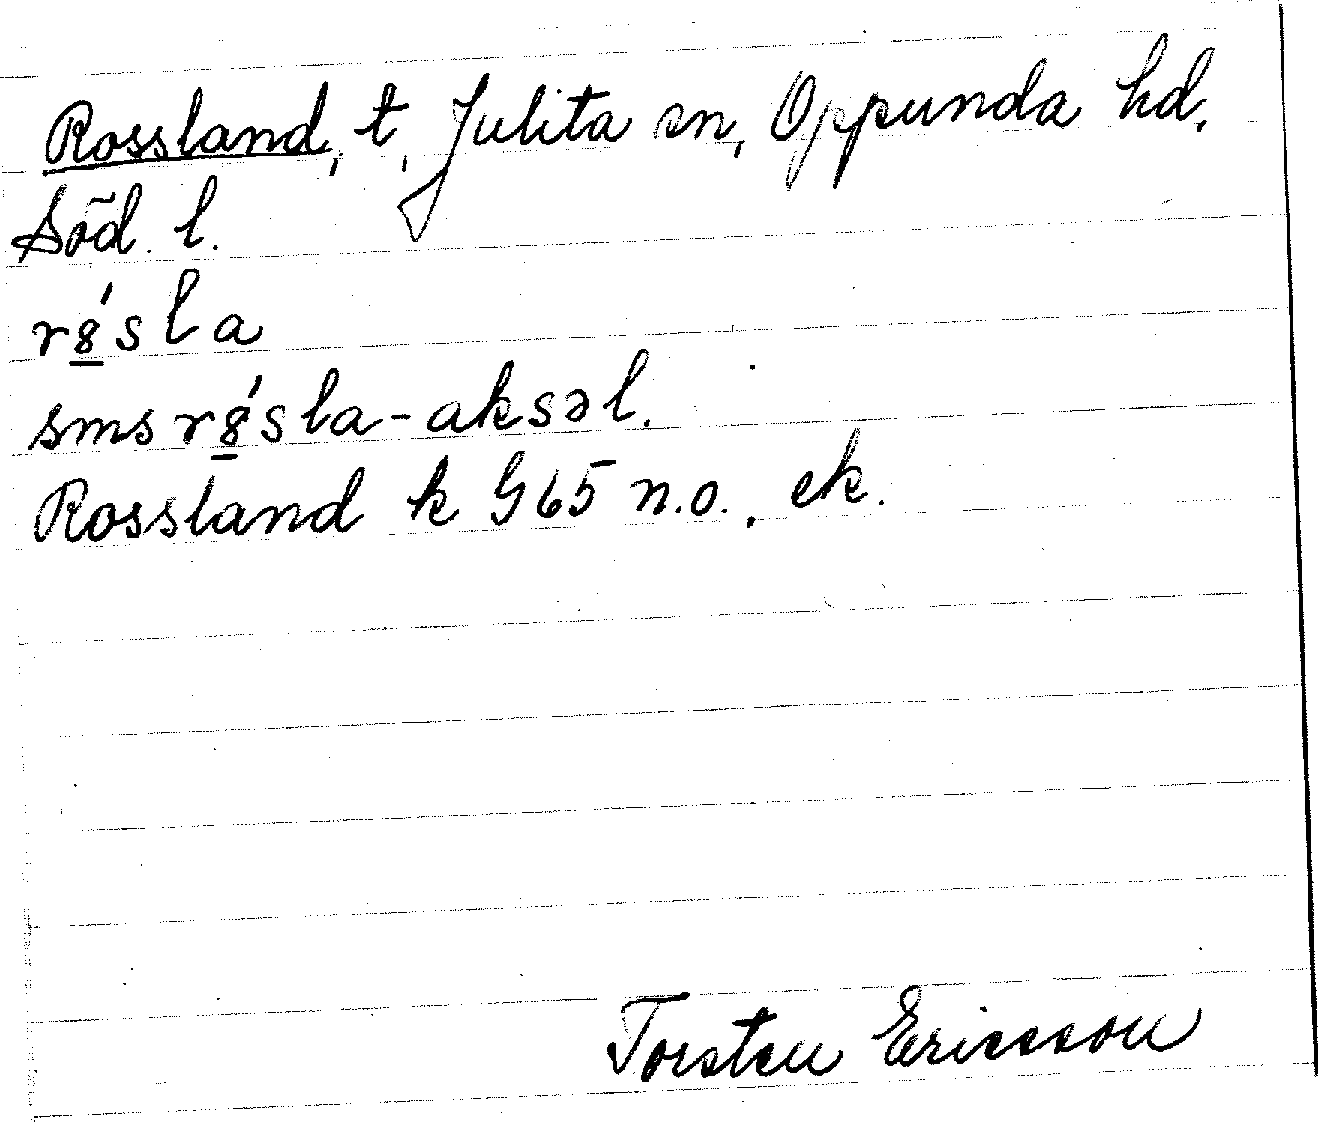 Rossland, t, Julita sn, Oppunda hd,
Söd. l.
r8́sla
sms r8́sla-aksəl.
Rossland k G65 n.o., ek.
Torsten Ericsson